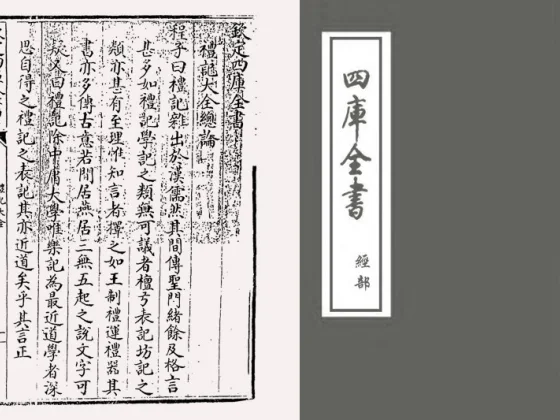 四庫全書
經部
欽定四庫全書
禮記大全總論
程子曰禮記雜出於漢儒然其間傳聖門緒餘及格言
甚多如禮記學記之類無可議者檀弓表記坊記之
類亦甚有至理惟知言者擇之如王制禮運禮器其
書亦多傳古意若閒居燕居三無五起之說文字可
疑又曰禮記除中庸大學唯樂記為最近道學者深
思自得之禮記之表記其亦近道矣乎其言正